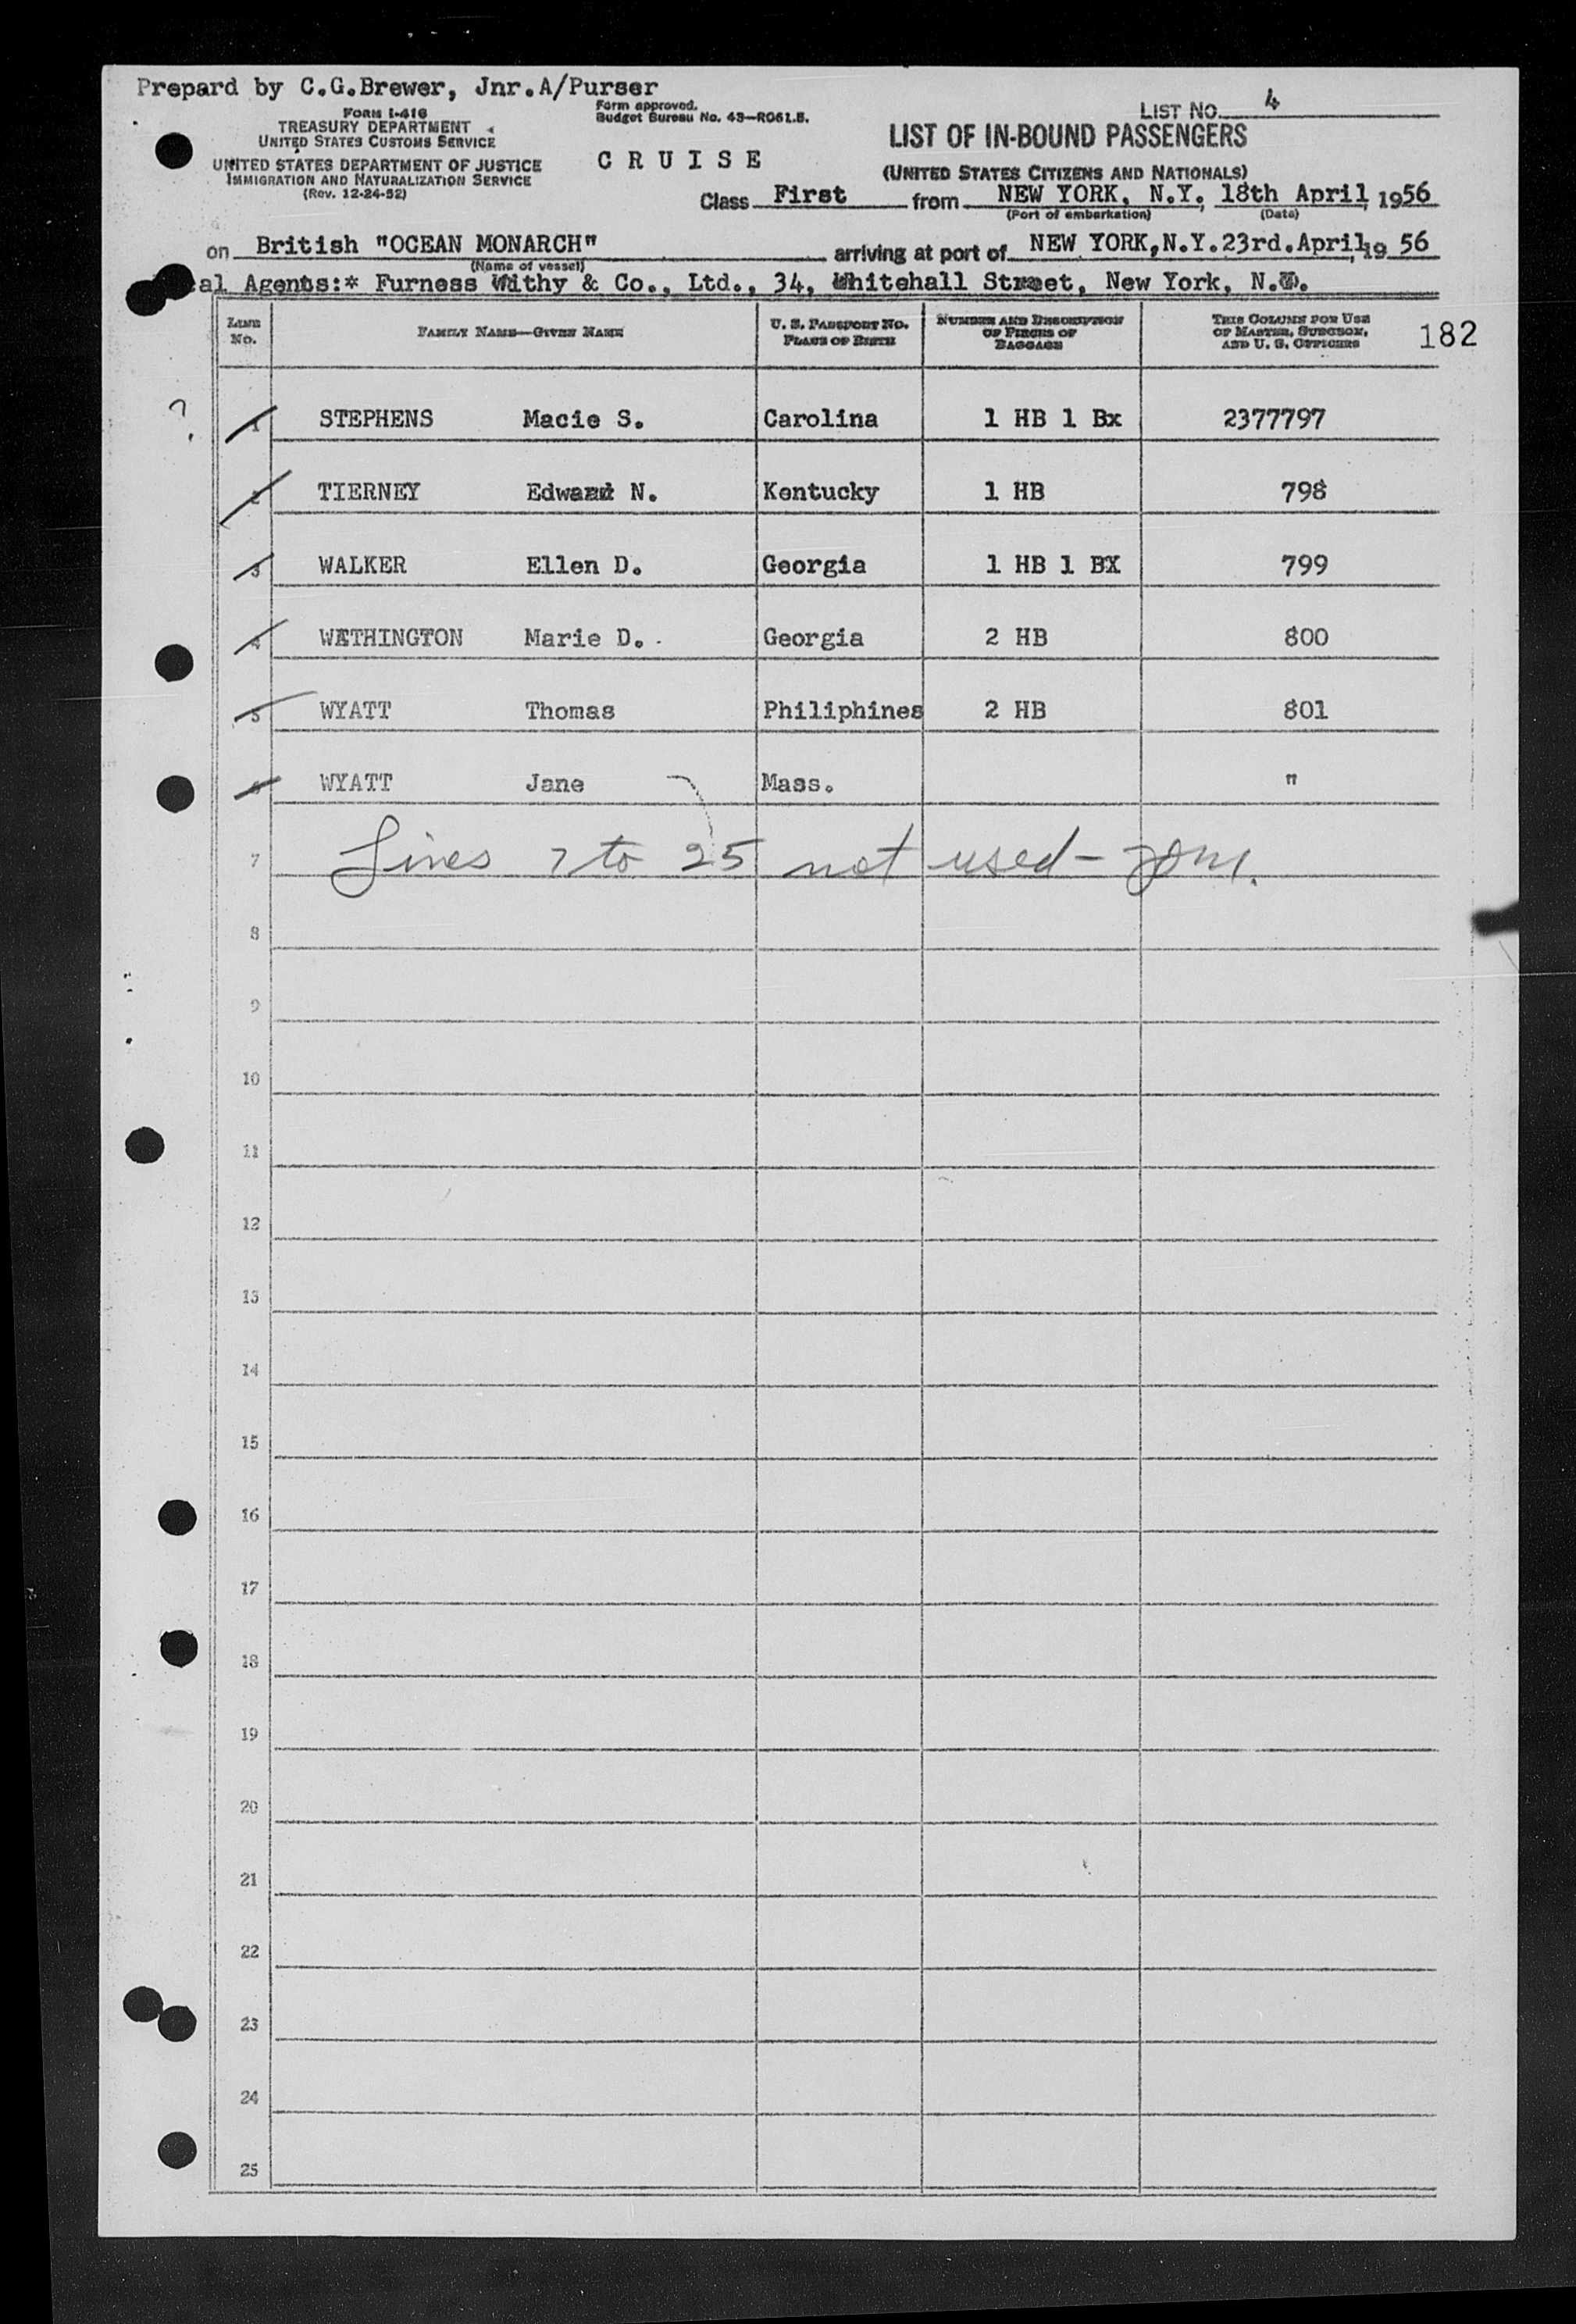 Prepard by C.G.Brewer, Jnr.A/Purser
Form I-416
TREASURY DEPARTMENT
UNITED STATES CUSTOMS SERVICE
UNITED STATES DEPARTMENT OF JUSTICE
IMMIGRATION AND NATURALIZATION SERVICE
(Rev. 12-24-52)
Form approved.
Budget Bureau No. 43—R061.5.
C R U I S E
LIST NO. 4
LIST OF IN-BOUND PASSENGERS
(UNITED STATES CITIZENS AND NATIONALS)
Class First from NEW YORK, N.Y. 18th April 1956
(Port of embarkation) (Date)
on British "OCEAN MONARCH" arriving at port of NEW YORK,N.Y.23rd.April, 19 56
(Name of vessel)
al Agents:* Furness Withy & Co., Ltd., 34, Whitehall Street, New York, N.Y.
LINE No. FAMILY NAME—GIVEN NAME U. S. PASSPORT NO. PLACE OF BIRTH NUMBER AND DESCRIPTION OF PIECES OF BAGGAGE THIS COLUMN FOR USE OF MASTER, SURGEON, AND U. S. OFFICERS 182
? 1 STEPHENS Macie S. Carolina 1 HB 1 Bx 2377797
2 TIERNEY Edward N. Kentucky 1 HB 798
3 WALKER Ellen D. Georgia 1 HB 1 BX 799
4 WETHINGTON Marie D. Georgia 2 HB 800
5 WYATT Thomas Philiphines 2 HB 801
6 WYATT Jane Mass. "
7 Lines 7 to 25 not used-
8
9
10
11
12
13
14
15
16
17
18
19
20
21
22
23
24
25